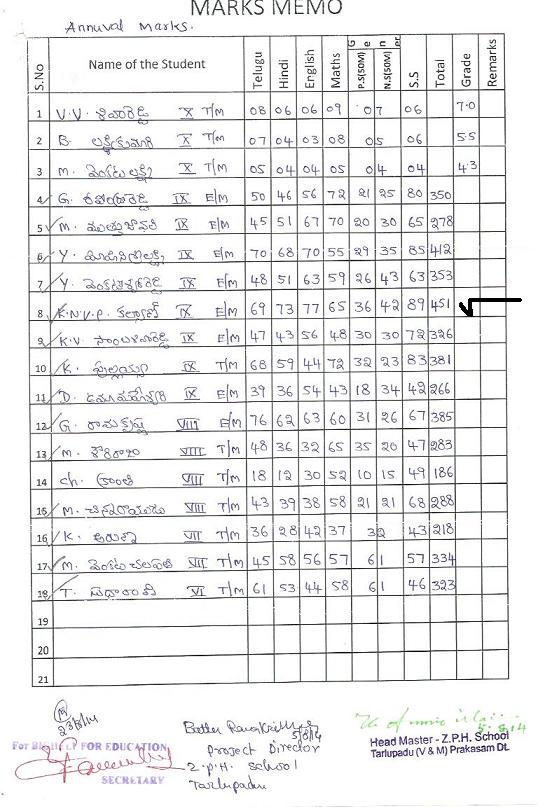 MARKS MEMO
Annuval Marks.
S.No Name of the Student Telugu Hindi English Maths Gener P.S(50M) N.S(50M) S.S Total Grade Remarks
1 V.V. X T/M 08 06 06 09 07 06 7.0
2 B. లక్ష్మీకుమారి X T/M 07 04 03 08 05 06 5.5
3 M. వెంకటలక్ష్మి X T/M 05 04 04 05 04 04 4.3
4 G. IX E/M 50 46 56 72 21 25 80 350
5 M. IX E/M 45 51 67 70 20 30 65 278
6 Y. IX E/M 70 68 70 55 29 35 85 412
7 Y. IX E/M 48 51 63 59 26 43 63 353
8 K.N.V.P. కల్యాణ్ IX E/M 69 73 77 65 36 42 89 451
9 K.V. IX E/M 47 43 56 48 30 30 72 326
10 K. IX T/M 68 59 44 72 32 23 83 381
11 D. ఉమామహేశ్వరి IX E/M 39 36 54 43 18 34 42 266
12 G. రామకృష్ణ VIII E/M 76 62 63 60 31 26 67 385
13 M. శౌరిరాజు VIII T/M 48 36 32 65 35 20 47 283
14 ch. క్రాంతి VIII T/M 18 12 30 52 10 15 49 186
15 M. చిన్నరాయుడు VIII T/M 43 39 38 58 21 21 68 288
16 K. అరుణ VII T/M 36 28 42 37 32 43 218
17 M. వెంకట చలపతి VII T/M 45 58 56 57 61 57 334
18 T. VI T/M 61 53 44 58 61 46 323
19
20
21
23/8/14
5/8/14
For BIGHELP FOR EDUCATION
SECRETARY
Project Director
Z.P.H. School
Tarlupadu
Head Master - Z.P.H. School
Tarlupadu (V & M) Prakasam Dt.